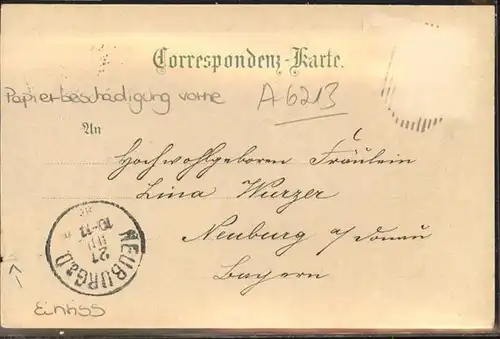 Correspondenz-Karte.
Papierbeschädigung vorne
A6213
An
Hochwohlgeboren Fräulein
Lina Wurzer
Neuburg a/Donau
Bayern
NEUBURG a.D.
21
10-11
Einriss